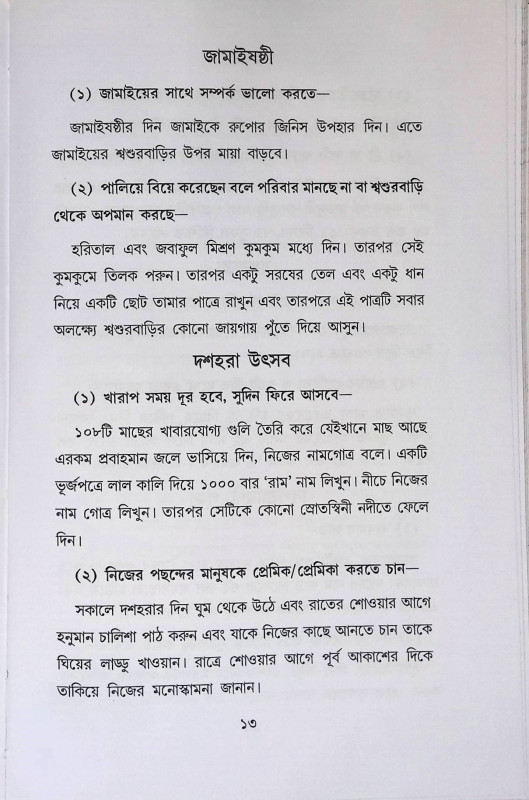 জামাইষষ্ঠী
(১) জামাইয়ের সাথে সম্পর্ক ভালো করতে—
জামাইষষ্ঠীর দিন জামাইকে রুপোর জিনিস উপহার দিন। এতে
জামাইয়ের শ্বশুরবাড়ির উপর মায়া বাড়বে।
(২) পালিয়ে বিয়ে করেছেন বলে পরিবার মানছে না বা শ্বশুরবাড়ি
থেকে অপমান করছে—
হরিতাল এবং জবাফুল মিশ্রণ কুমকুম মধ্যে দিন। তারপর সেই
কুমকুমে তিলক পরুন। তারপর একটু সরষের তেল এবং একটু ধান
নিয়ে একটি ছোট তামার পাত্রে রাখুন এবং তারপরে এই পাত্রটি সবার
অলক্ষ্যে শ্বশুরবাড়ির কোনো জায়গায় পুঁতে দিয়ে আসুন।
দশহরা উৎসব
(১) খারাপ সময় দূর হবে, সুদিন ফিরে আসবে—
১০৮টি মাছের খাবারযোগ্য গুলি তৈরি করে যেইখানে মাছ আছে
এরকম প্রবাহমান জলে ভাসিয়ে দিন, নিজের নামগোত্র বলে। একটি
ভূর্জপত্রে লাল কালি দিয়ে ১০০০ বার ‘রাম’ নাম লিখুন। নীচে নিজের
নাম গোত্র লিখুন। তারপর সেটিকে কোনো স্রোতস্বিনী নদীতে ফেলে
দিন।
(২) নিজের পছন্দের মানুষকে প্রেমিক/প্রেমিকা করতে চান—
সকালে দশহরার দিন ঘুম থেকে উঠে এবং রাতের শোওয়ার আগে
হনুমান চালিশা পাঠ করুন এবং যাকে নিজের কাছে আনতে চান তাকে
ঘিয়ের লাড্ডু খাওয়ান। রাত্রে শোওয়ার আগে পূর্ব আকাশের দিকে
তাকিয়ে নিজের মনোস্কামনা জানান।
১৩